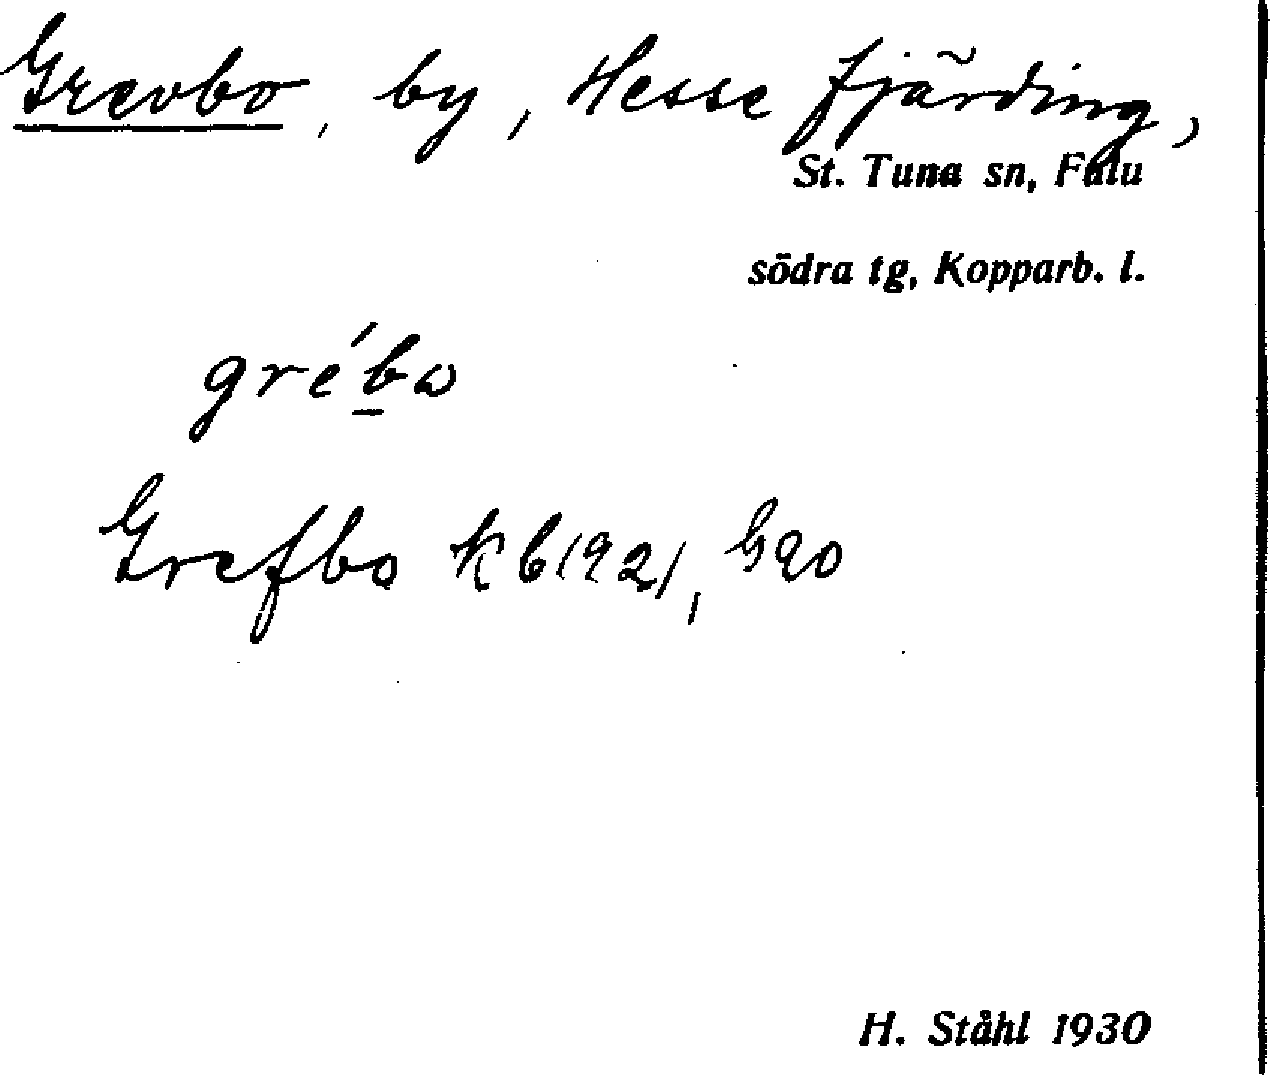 Grevbo, by, Hesse fjärding,
St. Tuna sn, Falu
södra tg, Kopparb. l.
gré́bω
Grefbo Kb 1921, G20
H. Ståhl 1930